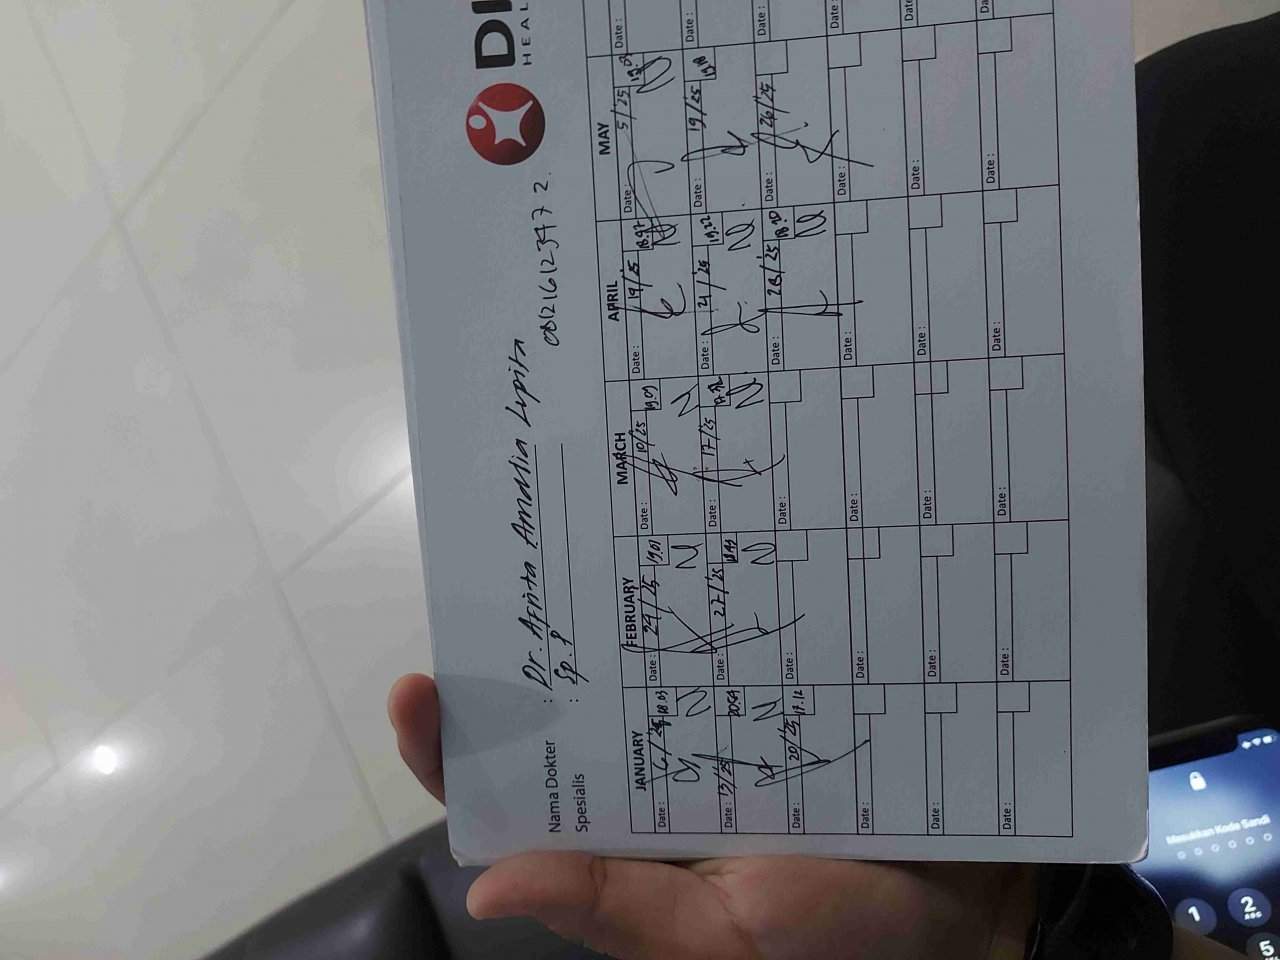 DI
HEAL
Nama Dokter : Dr. Afrita Amalia Lupita
Spesialis : Sp. P
081216123472.
JANUARY FEBRUARY MARCH APRIL MAY
Date: 6/'25 18.03 Date: 24/'25 19.01 Date: 10/25 19.09 Date: 14/'25 18.47 Date: 5/'25 Date:
Date: 13/'25 20.54 Date: 27/'25 Date: 17/'25 Date: 21/'25 19.22 Date: 19/'25 19.18 Date:
Date: 20/'25 17.12 Date: Date: Date: 28/'25 Date: 26/'25 Date:
Date: Date: Date: Date: Date:
Date: Date: Date: Date: Date: Date:
Date: Date: Date: Date: Date: Da
Masukkan Kode Sandi
1
2
ABC
5